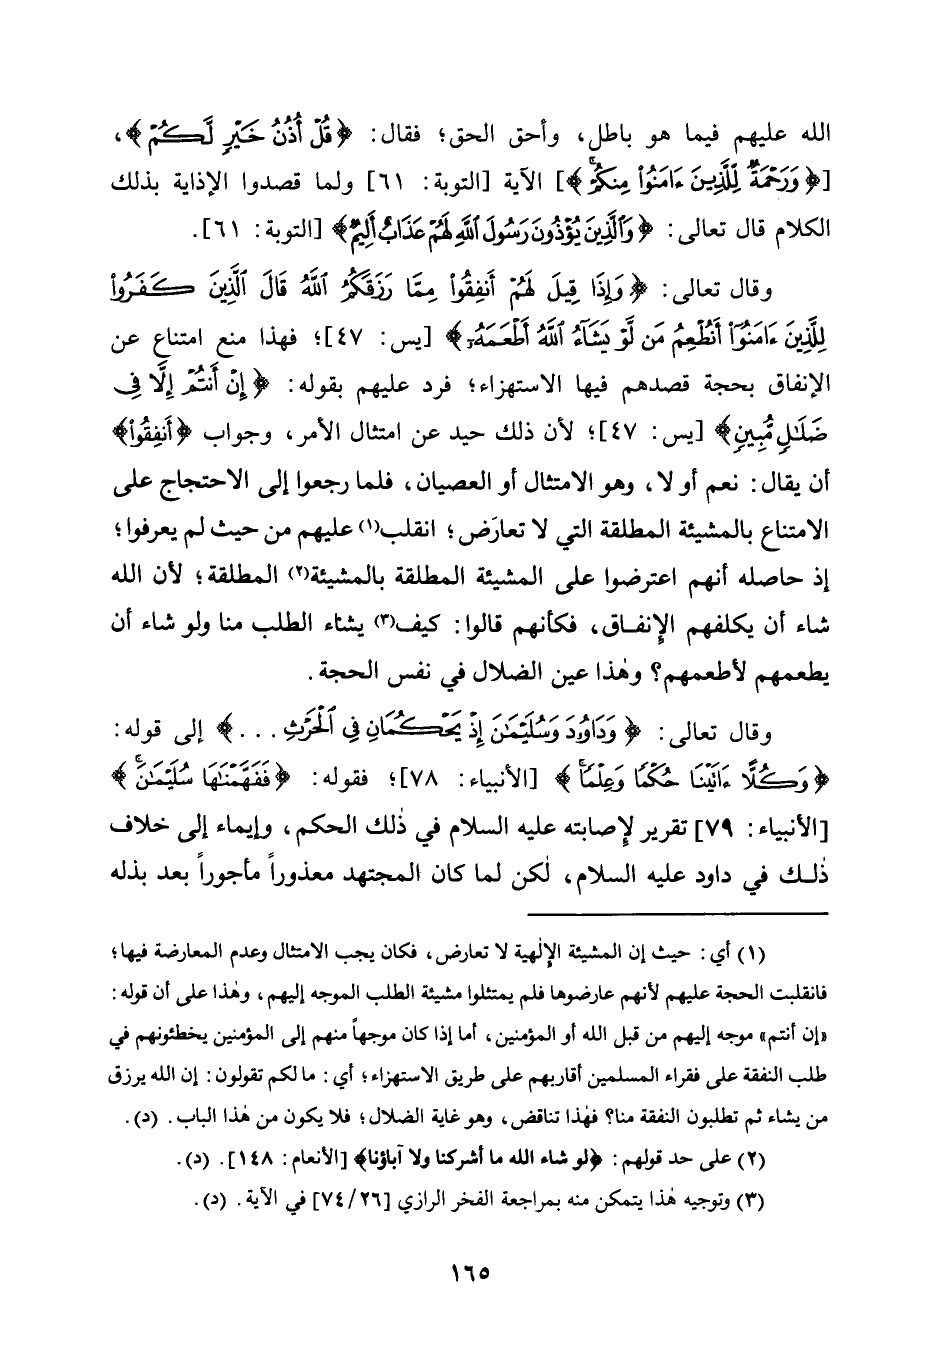 الله عليهم فيما هو باطل، وأحق الحق؛ فقال: ﴿قُلْ أُذُنُ خَيْرٍ لَّكُمْ﴾،
[﴿وَرَحْمَةٌ لِّلَّذِينَ ءَامَنُوا۟ مِنكُمْ﴾] الآية [التوبة: ٦١] ولما قصدوا الإذاية بذلك
الكلام قال تعالى: ﴿وَٱلَّذِينَ يُؤْذُونَ رَسُولَ ٱللَّهِ لَهُمْ عَذَابٌ أَلِيمٌ﴾ [التوبة: ٦١].
وقال تعالى: ﴿وَإِذَا قِيلَ لَهُمْ أَنفِقُوا۟ مِمَّا رَزَقَكُمُ ٱللَّهُ قَالَ ٱلَّذِينَ كَفَرُوا۟
لِلَّذِينَ ءَامَنُوٓا۟ أَنُطْعِمُ مَن لَّوْ يَشَآءُ ٱللَّهُ أَطْعَمَهُۥٓ﴾ [يس: ٤٧]؛ فهذا منع امتناع عن
الإنفاق بحجة قصدهم فيها الاستهزاء؛ فرد عليهم بقوله: ﴿إِنْ أَنتُمْ إِلَّا فِى
ضَلَٰلٍ مُّبِينٍ﴾ [يس: ٤٧]؛ لأن ذلك حيد عن امتثال الأمر، وجواب ﴿أَنفِقُوا۟﴾
أن يقال: نعم أو لا، وهو الامتثال أو العصيان، فلما رجعوا إلى الاحتجاج على
الامتناع بالمشيئة المطلقة التي لا تعارَض؛ انقلب(١) عليهم من حيث لم يعرفوا؛
إذ حاصله أنهم اعترضوا على المشيئة المطلقة بالمشيئة(٢) المطلقة؛ لأن الله
شاء أن يكلفهم الإنفـاق، فكأنهم قالوا: كيف(٣) يشاء الطلب منا ولو شاء أن
يطعمهم لأطعمهم؟ وهٰذا عين الضلال في نفس الحجة.
وقال تعالى: ﴿وَدَاوُۥدَ وَسُلَيْمَٰنَ إِذْ يَحْكُمَانِ فِى ٱلْحَرْثِ . . .﴾ إلى قوله:
﴿وَكُلًّا ءَاتَيْنَا حُكْمًا وَعِلْمًا﴾ [الأنبياء: ٧٨]؛ فقوله: ﴿فَفَهَّمْنَٰهَا سُلَيْمَٰنَ﴾
[الأنبياء: ٧٩] تقرير لإصابته عليه السلام في ذٰلك الحكم، وإيماء إلى خلاف
ذٰلـك في داود عليه السلام، لٰكن لما كان المجتهد معذوراً مأجوراً بعد بذله
(١) أي: حيث إن المشيئة الإلٰهية لا تعارض، فكان يجب الامتثال وعدم المعارضة فيها؛
فانقلبت الحجة عليهم لأنهم عارضوها فلم يمتثلوا مشيئة الطلب الموجه إليهم، وهٰذا على أن قوله:
«إن أنتم» موجه إليهم من قبل الله أو المؤمنين، أما إذا كان موجهاً منهم إلى المؤمنين يخطئونهم في
طلب النفقة على فقراء المسلمين أقاربهم على طريق الاستهزاء؛ أي: ما لكم تقولون: إن الله يرزق
من يشاء ثم تطلبون النفقة منا؟ فهٰذا تناقض، وهو غاية الضلال؛ فلا يكون من هٰذا الباب. (د).
(٢) على حد قولهم: ﴿لو شاء الله ما أشركنا ولا آباؤنا﴾ [الأنعام: ١٤٨]. (د).
(٣) وتوجيه هٰذا يتمكن منه بمراجعة الفخر الرازي [٢٦/٧٤] في الآية. (د).
١٦٥